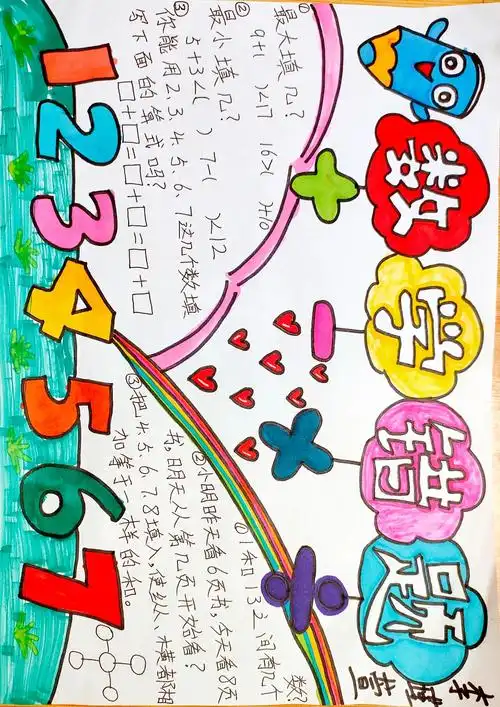 数学错题
①最大填几?
9+( )<17 16>( )+10
②最小填几?
5+3<( ) 7-( )<12
③你能用2.3.4.5.6.7这几个数填
写下面的算式吗?
□+□=□+□=□+□
①1和13之间有几个
数?
②小明昨天看6页书,今天看8页
书,明天从第几页开始看?
③把4.5.6.7.8填入,使纵、横都相
加等于一样的和。
1234567